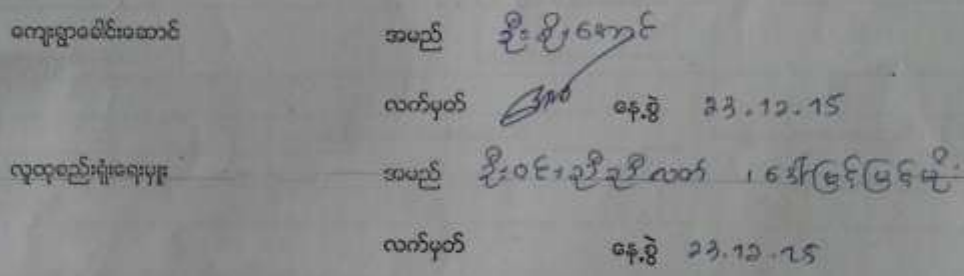 ကျေးရွာခေါင်းဆောင် အမည် ဦးစိုးအောင်
လက်မှတ် နေ့စွဲ 23.12.15
လူထုစည်းရုံးရေးမှူး အမည် ဦးဝင်း၊ ညီညီလတ် ၊ ဒေါ်မြင့်မြင့်မိုး
လက်မှတ် နေ့စွဲ 23.12.15